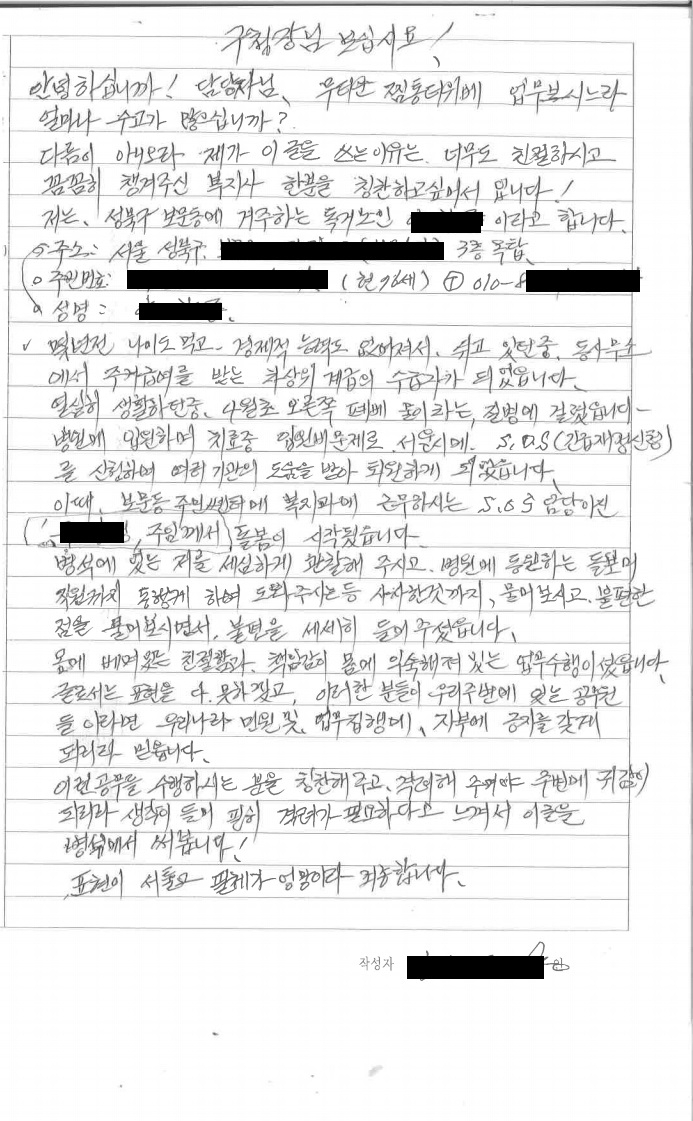 구청장님 보십시요!
안녕하십니까! 담당자님, 무더운 찜통더위에 업무보시느라
얼마나 수고가 많으십니까?
다름이 아니오라 제가 이 글을 쓰는 이유는, 너무도 친절하시고
꼼꼼히 챙겨주신 복지사 한분을 칭찬하고싶어서 입니다!
저는, 성북구 보문동에 거주하는 독거노인 이라고 합니다.
○ 주소: 서울 성북구, 3층 옥탑,
○ 주민번호: (현 76세) T 010-8
○ 성명 :
✓ 몇년전 나이도 먹고 - 경제적 능력도 없어져서, 쉬고 있던중, 동사무소
에서 주거급여를 받는 차상위 계급의 수급자가 되었읍니다.
열실히 생활하던중, 4월초 오른쪽 폐에 물이라는, 질병에 걸렸읍니다-
병원에 입원하며 치료중 입원비문제로 서울시에. S.O.S (긴급재정신청)
를 신청하여 여러 기관의 도움을 받아 퇴원하게 되었읍니다.
이때, 보문동 주민쎈타에 복지과에 근무하시는 S.O.S 담당이신
주임께서 돌봄이 시작됬읍니다-
병석에 있는 저를 세심하게 관찰해 주시고, 병원에 동원하는 돌보미
직원까지 동행게 하여 도와주시는등 사사한것까지, 물어보시고, 불편한
점을 물어보시면서, 불편을 세세히 들어주셨읍니다,
몸에 베여있는 친절함과, 책임감이 몸에 익숙해져 있는 업무수행이셨읍니다
글로서는 표현을 다 못하겠고, 이러한 분들이 우리주변에 있는 공무원
들 이라면 우리나라 민원 및, 업무집행에, 자부에 긍지를 갖게
되리라 믿읍니다.
이런 공무를 수행하시는 분을 칭찬해주고, 격려해 주며야 주변에 귀감이
되리라 생각이 들어 필히 격려가 필요하다고 느껴서 이글을
병석에서 써봅니다!
표현이 서툴고 필체가 엉망이라 죄송합니다.
작성자 인